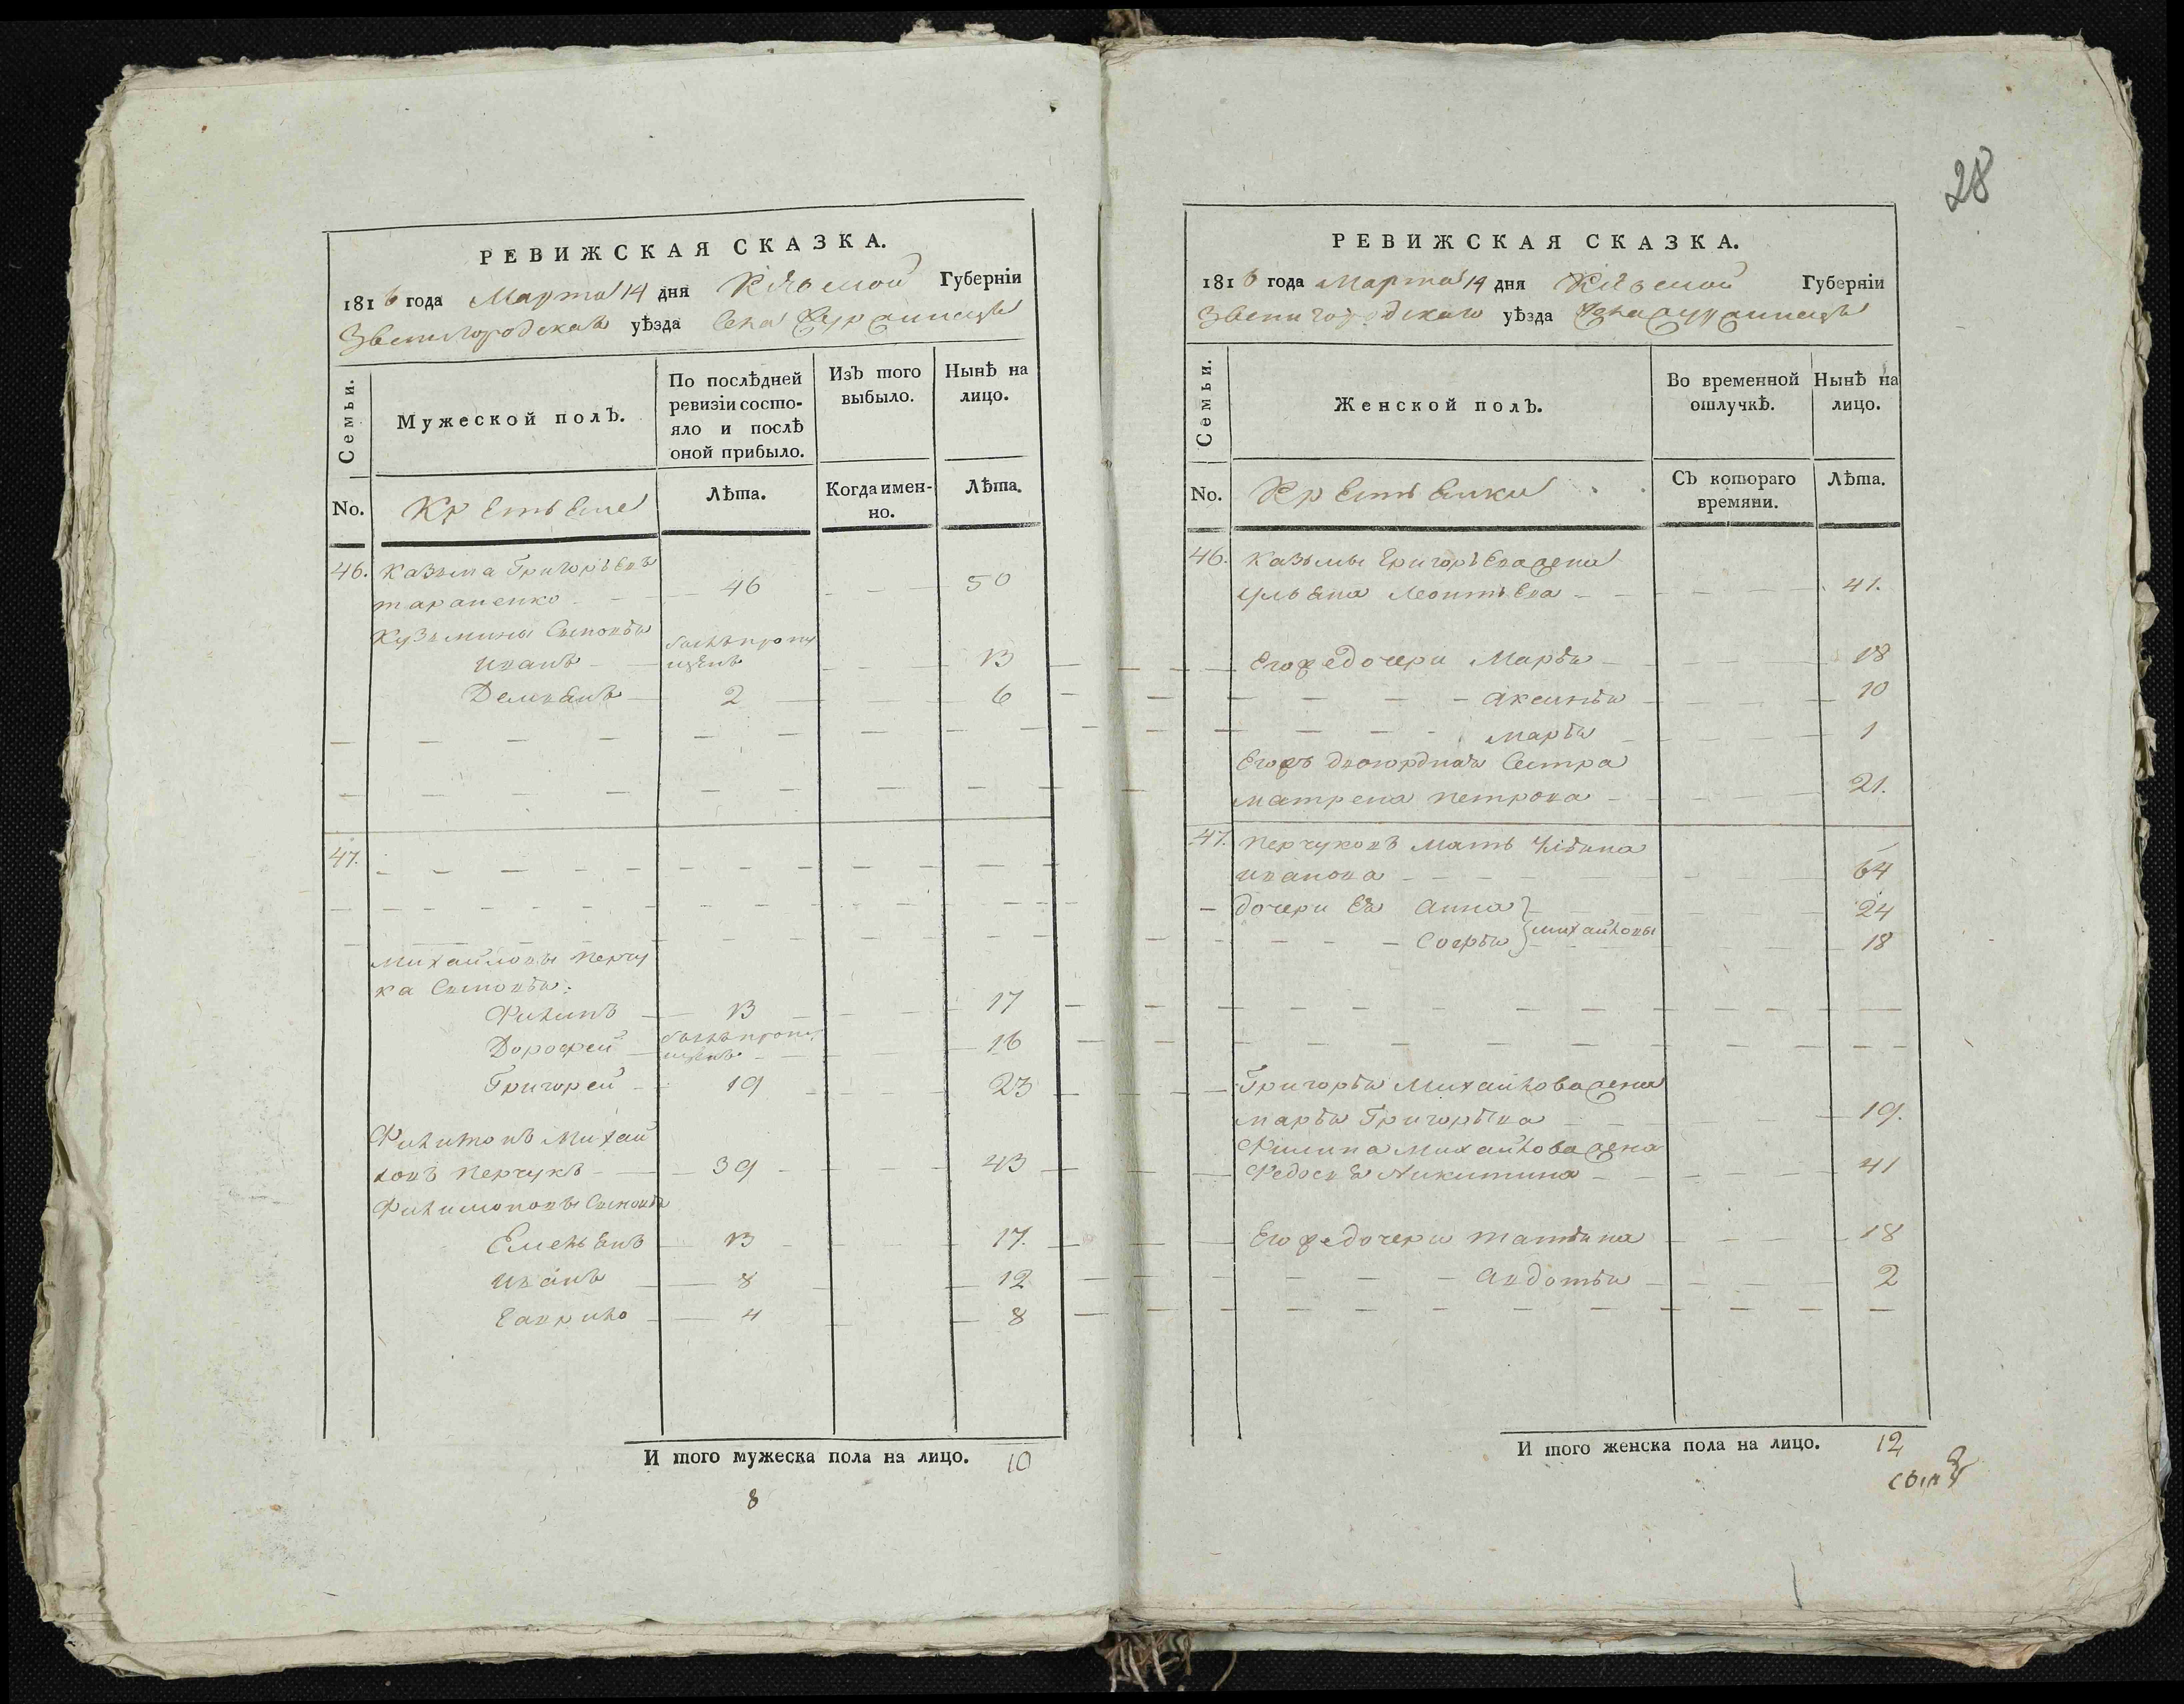 РЕВИЖСКАЯ СКАЗКА.
1816 года Марта 14 дня Губерніи
Звенигородскаго уѣзда Села
Семьи.
Мужеской полЪ.
По послѣдней
ревизіи состо-
яло и послѣ
оной прибыло.
ИзЪ того
выбыло.
Нынѣ на
лицо.
No.
Крестьяне
Лѣта.
Когда имен-
но.
Лѣта.
46. Казьма Григорьевъ
тараненко 46 50
Кузьмины Сыновья
былъ пропу
иванъ щенъ 13
Демьянъ 2 6
47.
Михайловы перчу
ка Сыновья:
Филипъ 13 17
былъ пропу
Дорофей щенъ 16
Григорей 19 23
Филимонъ Михай
ловъ перчукъ 39 43
Филимоновы Сыновья
Емельянъ 13 17.
иванъ 8 12
Гаврило 4 8
И того мужеска пола на лицо. 10
8
28
РЕВИЖСКАЯ СКАЗКА.
1816 года Марта 14 дня Губерніи
Звенигородскаго уѣзда
Семьи.
Женской полЪ.
Во временной
отлучкѣ.
Нынѣ на
лицо.
No.
Крестьянки
СЪ котораго
времяни.
Лѣта.
46. Казьмы Григорьева жена
ульяна Леонтьева 41.
Его же дочери Марья 18
аксинья 10
марья 1
Его двоюрдная Сестра
матрена петрова 21.
47. перчуковъ мать
иванова 64
дочери Ея анна 24
михайловы
Софья 18
Григорья Михайлова жена
марья Григорьева 19.
Филипа Михайлова жена
Федосья Никитина 41
Его же дочери татьяна 18
авдотья 2
И того женска пола на лицо. 12